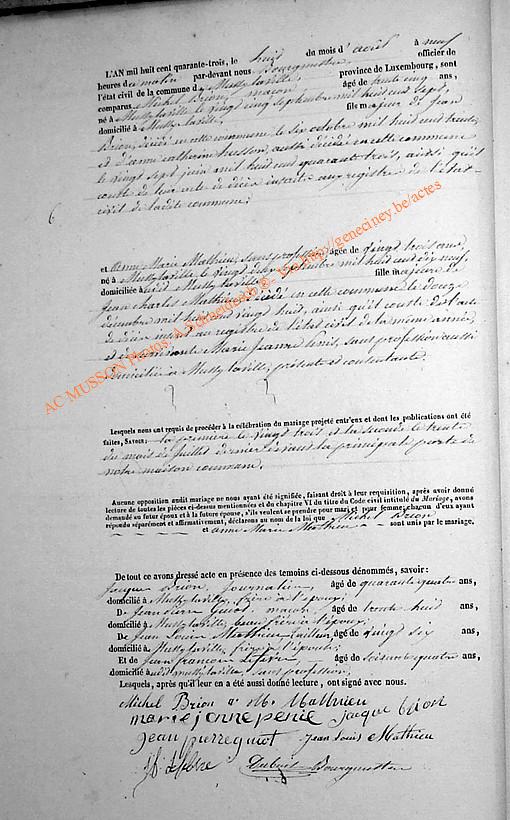 L'AN mil huit cent quarante-trois, le huit du mois d'août à neuf
heures du matin par-devant nous Bourgmestre officier de
l'état civil de la commune de Mussy-laville, province de Luxembourg, sont
comparus Michel Brion, maçon âgé de trente cinq ans,
né à Mussy-laville le vingt cinq septembre mil huit cent sept,
domicilié à Mussy-laville, fils majeur de Jean
Brion, décédé en cette commune le six octobre mil huit cent trente
et d'anne catherine husson, aussi décédée en cette commune
le vingt sept juin mil huit cent quarante trois, ainsi qu'il
conste de leur acte de décès inscrits aux registres de l'état
civil de ladite commune;
et Anne Marie Mathieu, sans profession âgée de vingt trois ans,
né à Mussy-laville le vingt septembre mil huit cent dix neuf,
domiciliée à Mussy-laville, fille majeure de
Jean Charles Mathieu, décédé en cette commune le douze
décembre mil huit cent vingt huit, ainsi qu'il conste de l'acte
de décès inscrit au registre de l'état civil de la même année,
et de Marie Jeanne Penis, sans profession, aussi
domiciliée à Mussy-laville, présente et consentante.
Lesquels nous ont requis de procéder à la célébration du mariage projeté entr'eux et dont les publications ont été
faites, SAVOIR: la première le vingt trois et la seconde le trente
du mois de juillet dernier devant la principale porte de
notre maison commune.
Aucune opposition audit mariage ne nous ayant été signifiée, faisant droit à leur requisition, après avoir donné
lecture de toutes les pièces ci-dessus mentionnées et du chapitre VI du titre du Code civil intitulé du Mariage, avons
demandé au futur époux et à la future épouse, s'ils veulent se prendre pour mari et pour femme; chacun d'eux ayant
répondu séparément et affirmativement, déclarons au nom de la loi que Michel Brion
et anne Marie Mathieu sont unis par le mariage.
De tout ce avons dressé acte en présence des temoins ci-dessous dénommés, savoir:
Jacque Brion, journalier, âgé de quarante quatre ans,
domicilié à Mussy-laville, frère à l'époux;
De Jean Pierre Guiot, maçon, âgé de trente huit ans,
domicilié à Mussy-laville, beau frère à l'époux;
De Jean Louis Mathieu, tailleur, âgé de vingt six ans,
domicilié à Mussy-laville, frère à l'épouse;
Et de Jean françois Lefèvre âgé de soixante quatre ans,
domicilié à Mussy-laville, sans profession;
Lesquels, après qu'il leur en a été aussi donné lecture, ont signé avec nous.
Michel Brion A M. Mathieu
marie jenne penie Jacque Brion
Jean pierre guiot Jean Louis Mathieu
Lefevre Bourgmestre
AC MUSSON Photos: A. Schneider http://geneciney.be/actes